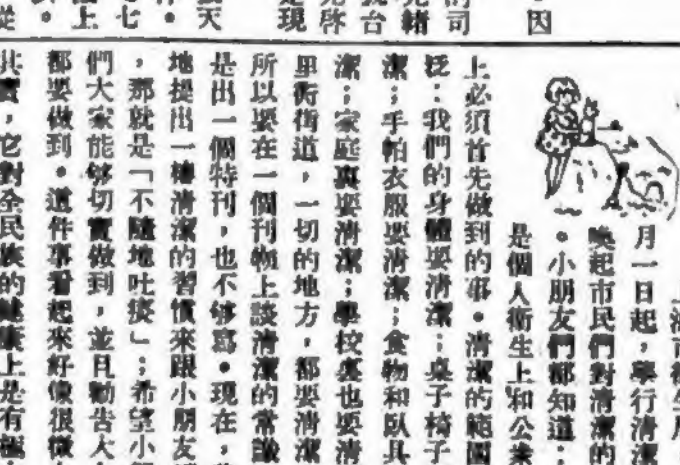 上海市衛生局
月一日起，舉行清潔
喚起市民們對清潔的
。小朋友們都知道：
是個人衛生上和公衆
上必須首先做到的事。清潔的範圍
泛：我們的身體要清潔；桌子椅子
潔；手帕衣服要清潔；食物和臥具
潔；家庭裏要清潔；學校裏也要清
里衖街道，一切的地方，都要清潔
所以要在一個刊物上談清潔的常識
是出一個特刊，也不够寫。現在，
地提出一樁清潔的習慣來跟小朋友
，那就是「不隨地吐痰」；希望小
們大家能够切實做到，並且勸告大
都要做到。這件事看起來好像很微
其實，它對全民族的健康上是有極
因
司
緒
台
啓
現
天
。
七
上
。
從